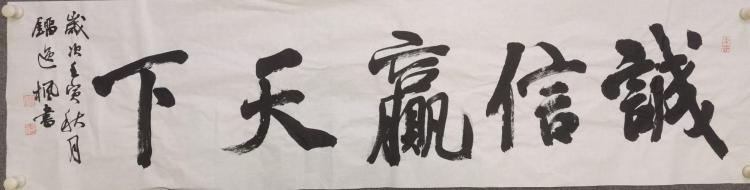 誠信贏天下
歲次壬寅秋月
逸楓書